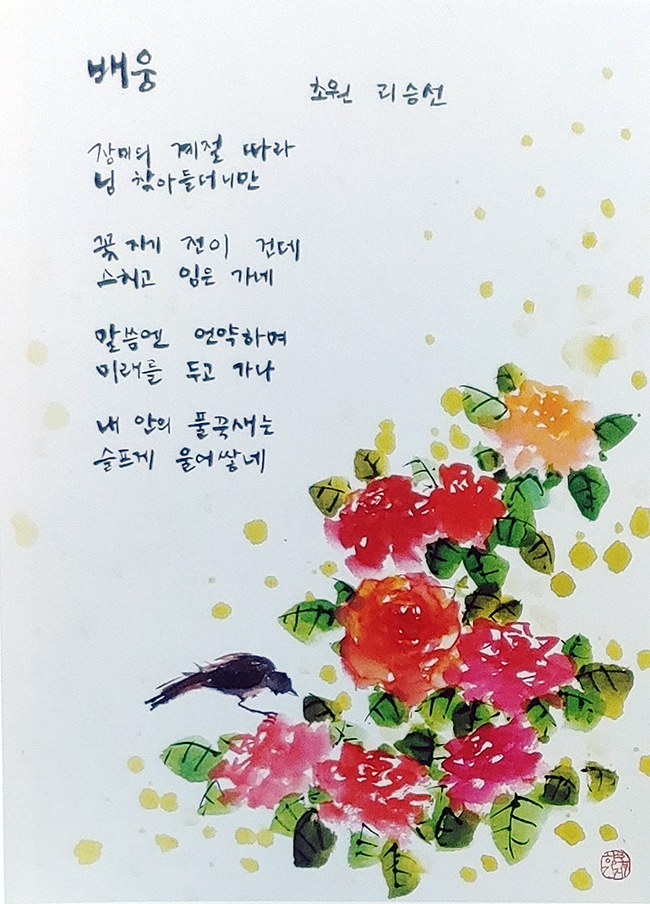 배웅
초원 리승선
장미의 계절 따라
님 찾아들더니만
꽃 지기 전이 건데
스치고 임은 가네
말씀엔 언약하며
미래를 두고 가나
내 안의 풀꾹새는
슬프게 울어쌓네